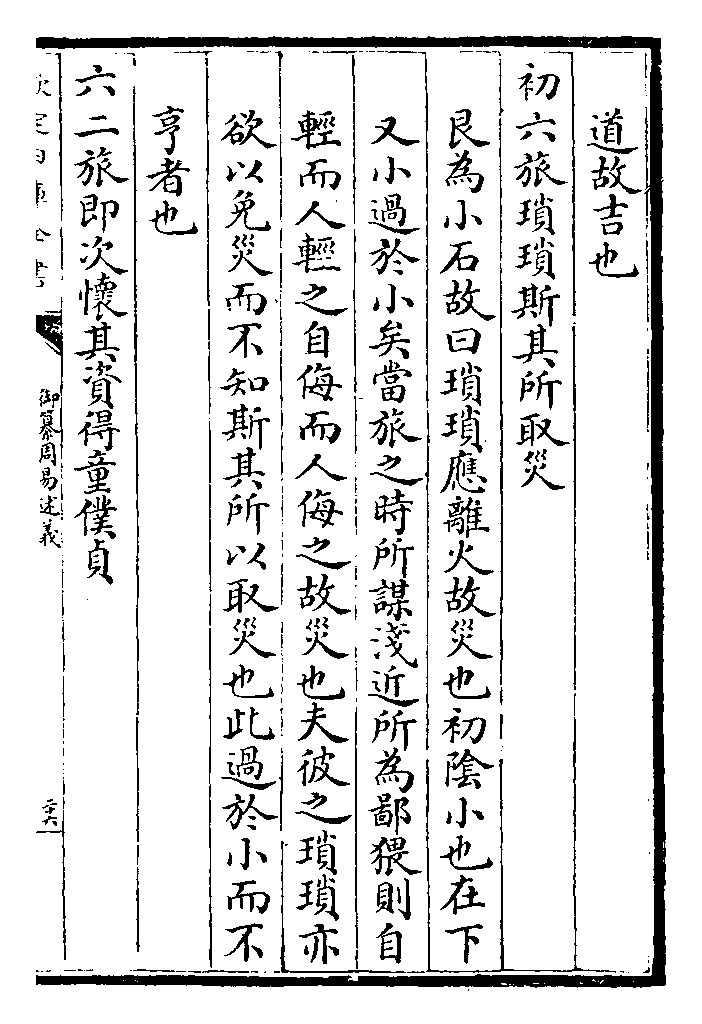 道故吉也
初六旅瑣瑣斯其所取災
艮為小石故曰瑣瑣應離火故災也初陰小也在下
又小過於小矣當旅之時所謀淺近所為鄙猥則自
輕而人輕之自侮而人侮之故災也夫彼之瑣瑣亦
欲以免災而不知斯其所以取災也此過於小而不
亨者也
六二旅即次懷其資得童僕貞
御纂周易述義
二十六